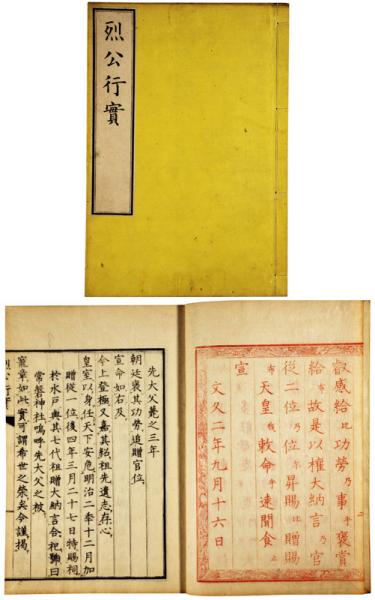 烈公行實
二
叡感給比功勞乃事乎褒賞
給布故是以權大納言乃官
從二位乃位尓昇賜比贈賜
布天皇我敕命乎遠聞食止
宣
文久二年九月十六日
先大父薨之三年
朝廷褒其功勞追贈官位
宣命如右及
今上登極又嘉其紹祖先遺志存心
皇室以身任天下安危明治二年十二月加
贈從一位後四年三月二十七日特賜祠
於水戶與其七代祖贈大納言合祀號曰
常磐神社嗚呼先大父之被
寵章如此實可謂希世之榮矣今謹揭
烈公行實